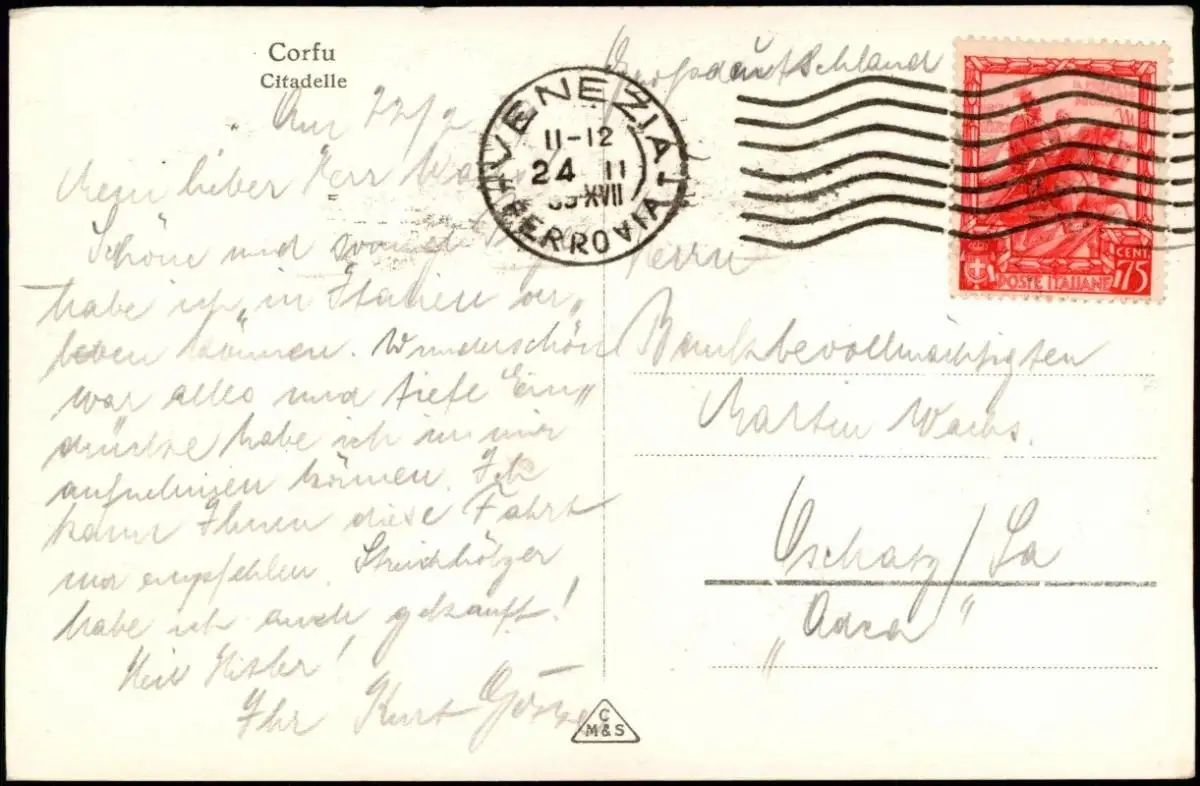 Corfu
Citadelle
Am 22/2
Mein lieber Herr
Schöne und
habe ich in Italien ver„
leben können. Wunderschön
war alles und tiefe Ein„
drücke habe ich in mir
aufnehmen können. Ich
kann Ihnen diese Fahrt
nur empfehlen. Streichhölzer
habe ich auch gekauft!
Heil Hitler!
Ihr Kurt
C
M&S
VENEZIA
11-12
24 II
XVII
FERROVIA
Grossdeutschland
POSTE ITALIANE
CENT.
75
Herrn
Bankbevollmächtigten
Martin Wachs.
Oschatz/Sa
„Adca"